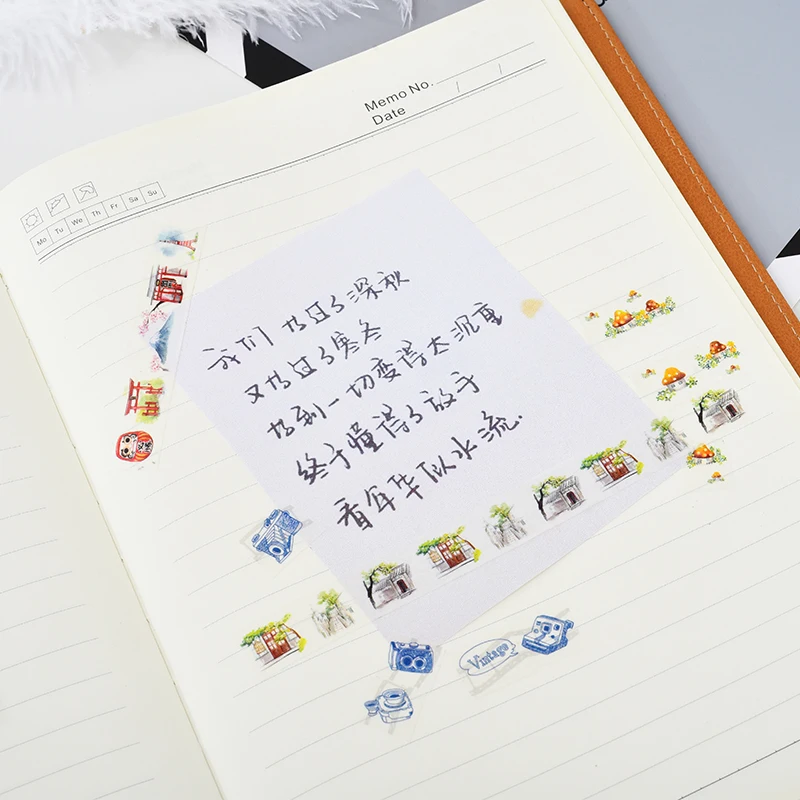 Memo No.
Date / /
Mo Tu We Th Fr Sa Su
我们 过了深秋
又 过了寒冬
到一切变得太沉重
终于懂得了放手
看年华似水流.
Vintage